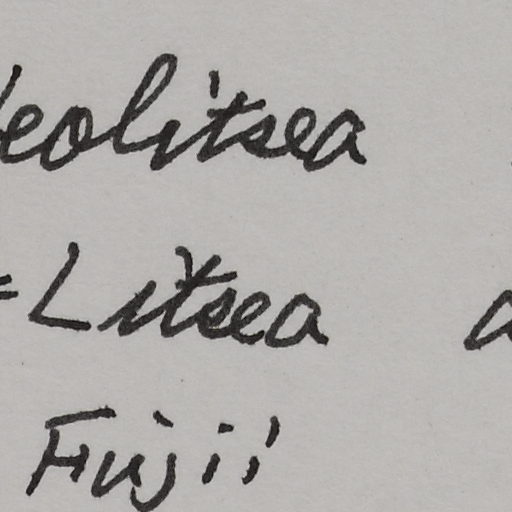 Neolitsea
=Litsea a
Fujii